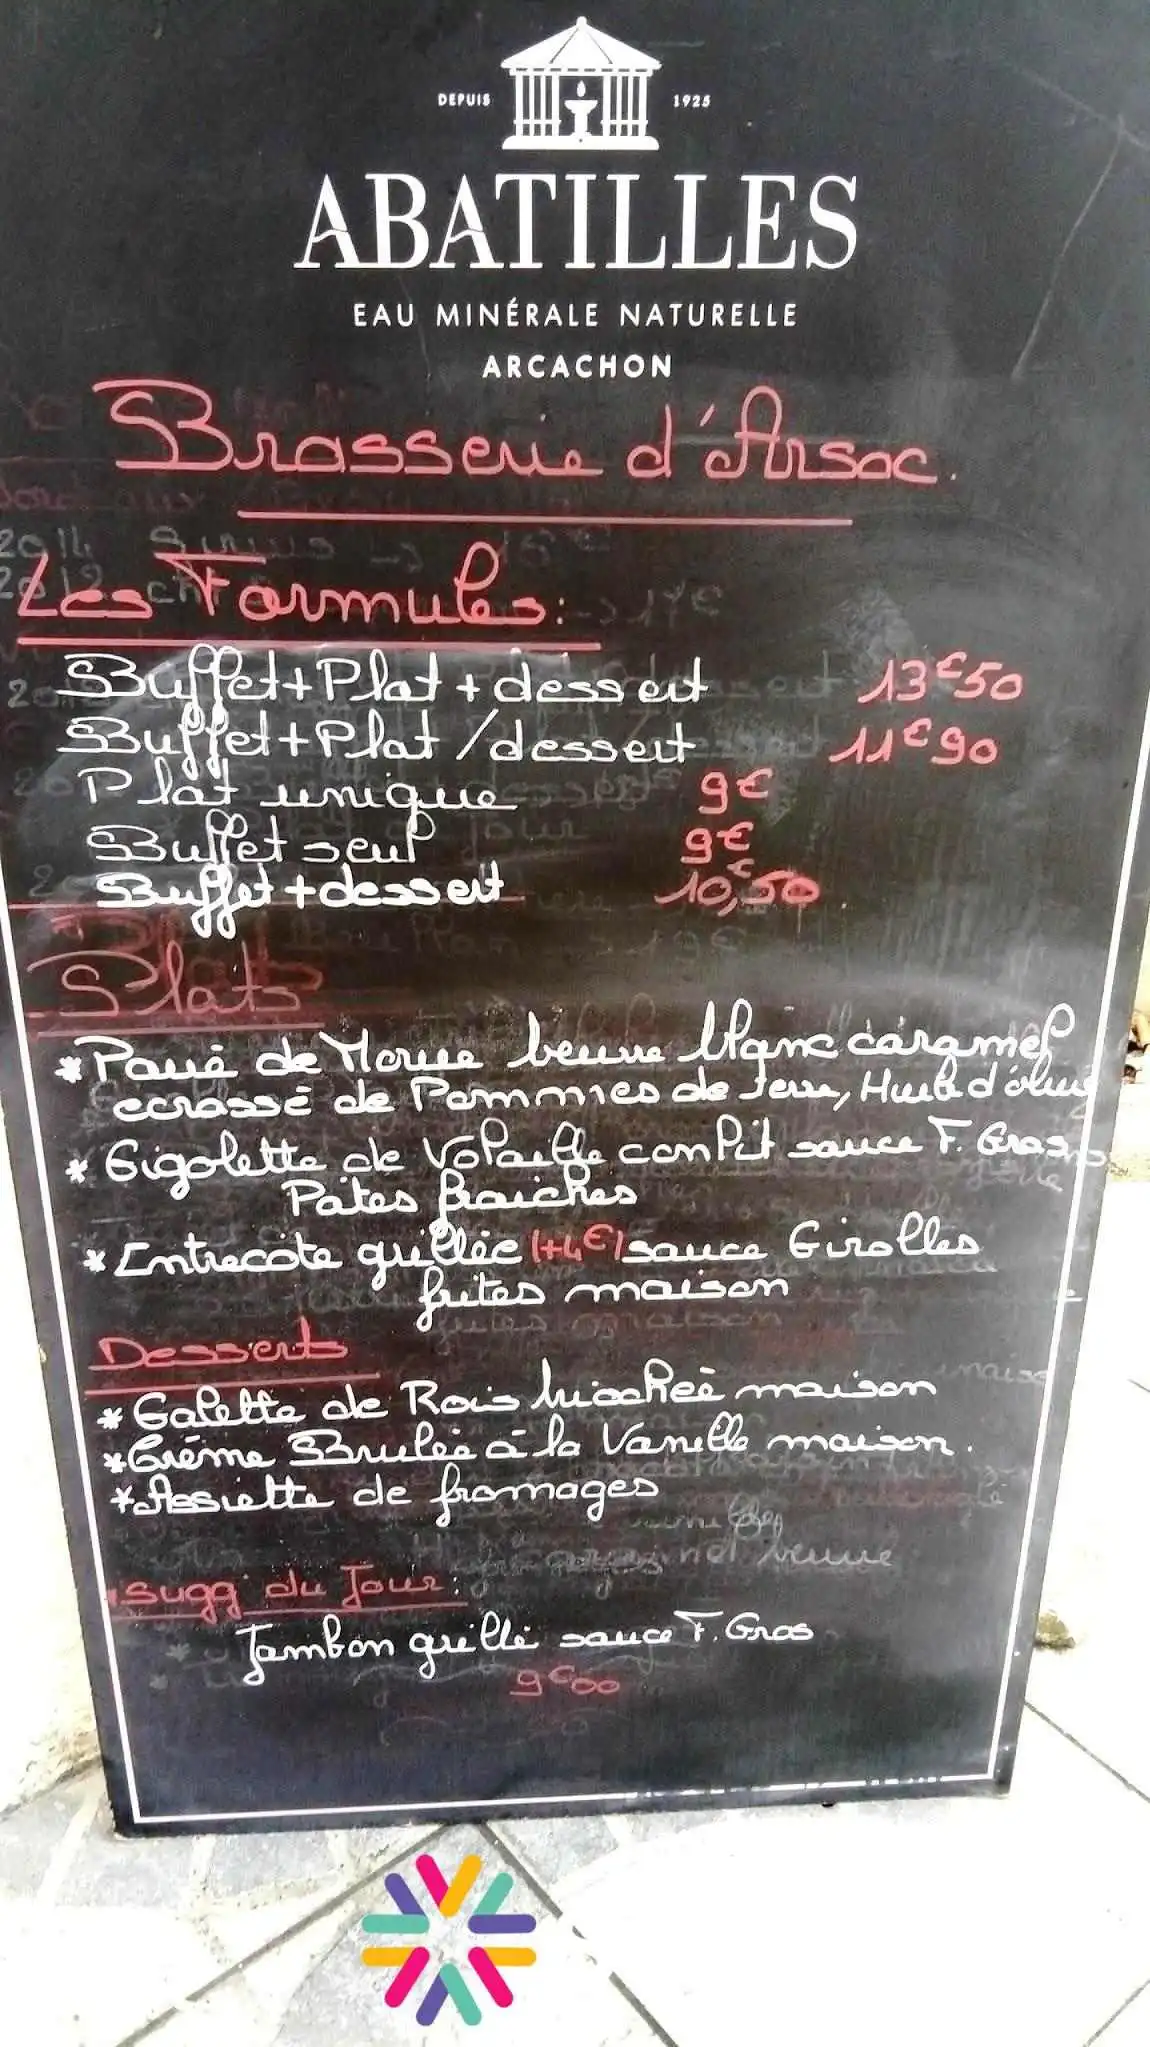 DEPUIS 1925
ABATILLES
EAU MINÉRALE NATURELLE
ARCACHON
Brasserie d'Arsac.
Les Formules:
Buffet + Plat + dessert 13€50
Buffet + Plat / dessert 11€90
Plat unique 9€
Buffet seul 9€
Buffet + dessert 10,€50
Plats
* Pavé de Morue beurre blanc caramel
ecrassé de Pommes de terre, Huile d'olive
* Gigolette de Volaille confit sauce F. Gras
Pâtes fraiches
* Entrecôte grillée (+4€) sauce Girolles
frites maison
Desserts
* Galette de Rois briochée maison
* Crème Brulée à la Vanille maison.
* Assiette de fromages
sugg du Jour:
Jambon grillé sauce F. Gras
9€00